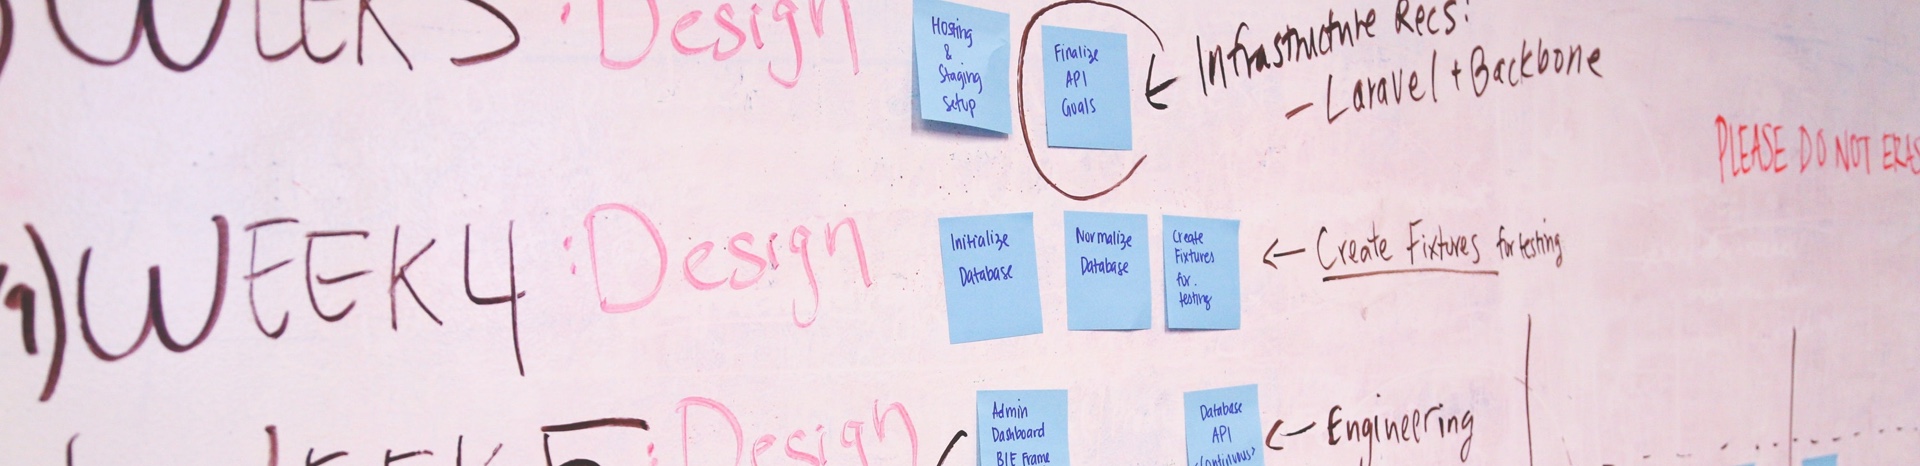 WEEK 3 : Design
Hosting
&
Staging
Setup
Finalize
API
Goals
← Infrastructure Recs:
- Laravel + Backbone
PLEASE DO NOT ERAS
WEEK 4 : Design
Initialize
Database
Normalize
Database
Create
Fixtures
for.
testing
← Create Fixtures for testing
WEEK 5 : Design
Admin
Dashboard
BIE Frame
Database
API
<Continuous>
← Engineering